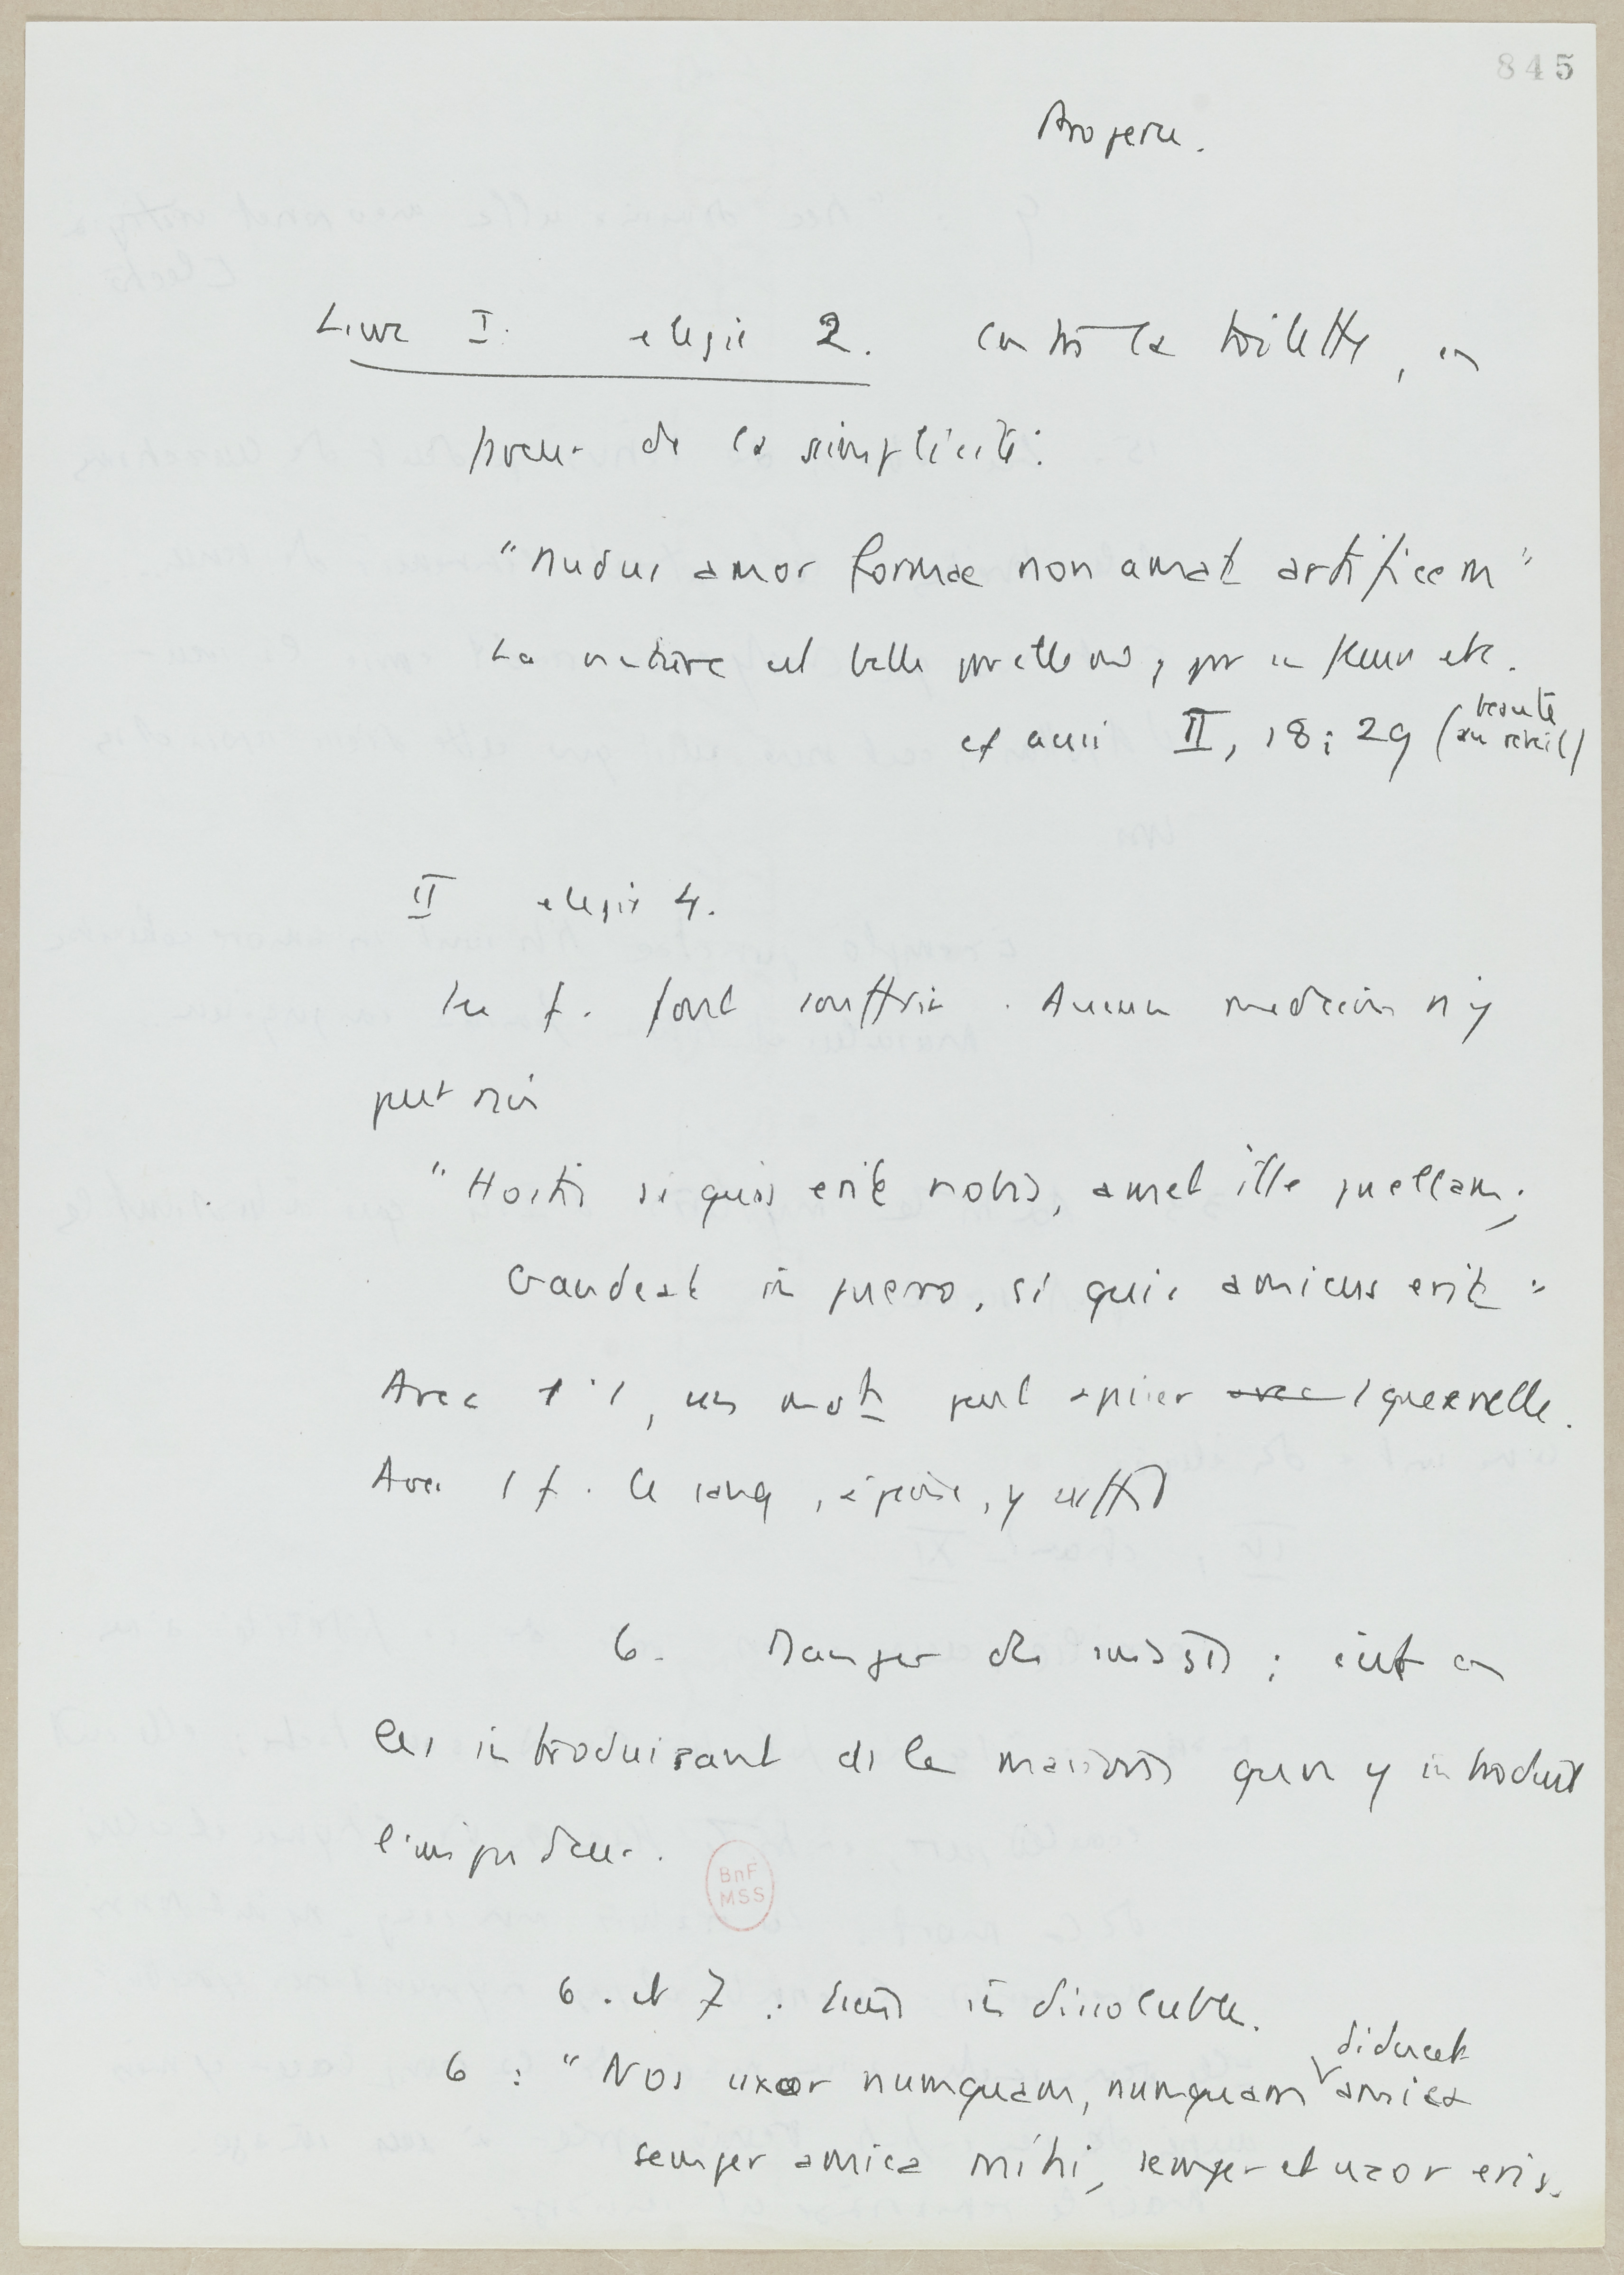 845
Properce.
Livre I. elegie 2. contre la toilette, en
faveur de la simplicité:
"nudus amor formae non amat artificem"
La nature est belle
cf aussi II, 18; 29 (beauté
au réveil)
II elegie 4.
Les f. font souffrir. Aucun medecin n'y
peut rien
"Hostis si quis erit nobis, amet ille puellam;
Gaudeat in puero, si quis amicus erit"
Avec 1 , un mot peut apaiser avec 1 querelle.
Avec 1 f. le sang, à peine, y suffit
6. Danger des ; c'est en
les introduisant ds les maisons qu'on y introduit
l'impudeur.
BnF
MSS
6. et 7. : liens indissoluble.
6 : "Nos uxor numquam, numquam diducet amica
semper amica mihi, semper et uxor eris.